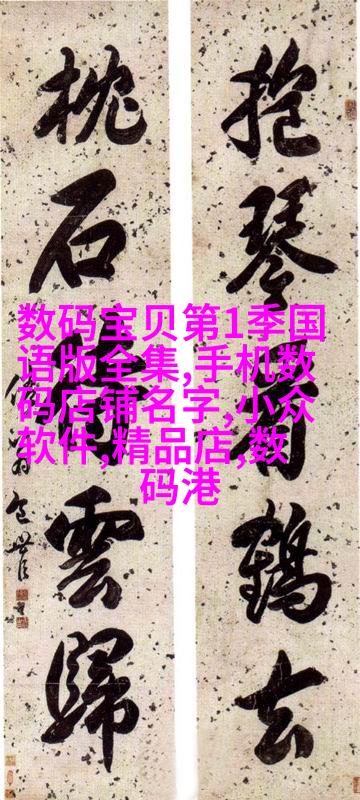 抱琴看鶴去
枕石待雲歸
包世臣
数码宝贝第1季国
语版全集,手机数
码店铺名字,小众
软件,精品店,数
码港